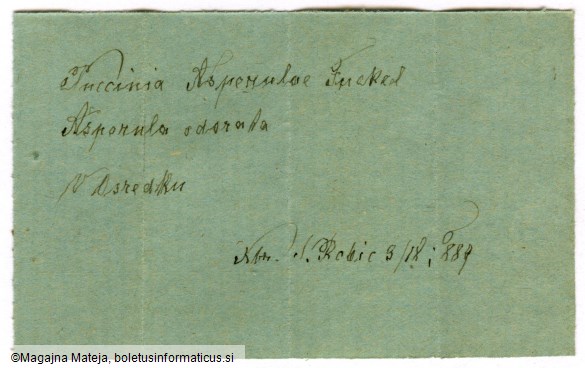 Puccinia Asperulae Fuckel
Asperula odorata
V Osredku
Nbr. S. Robic 9/IX; 889
©Magajna Mateja, boletusinformaticus.si